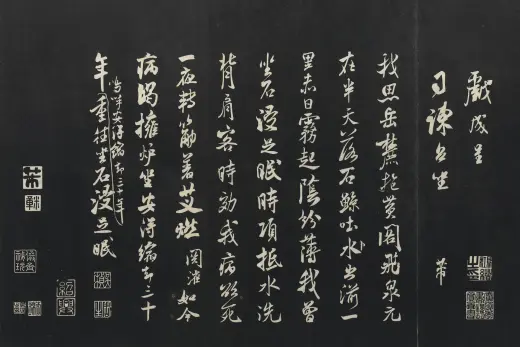 戲成呈
司諫台坐
芾
我思岳麓抱黃閣飛泉元
在半天落石鯨吐水出湔一
里赤日霧起陰紛薄我曾
坐石浸足眠時項抵水洗
背肩客時效我病欲死
一夜轉筋著艾燃關灌如今
病渴擁爐坐安得縮卻三十
嗚呼安得縮卻三十年
年重往坐石浸足眠